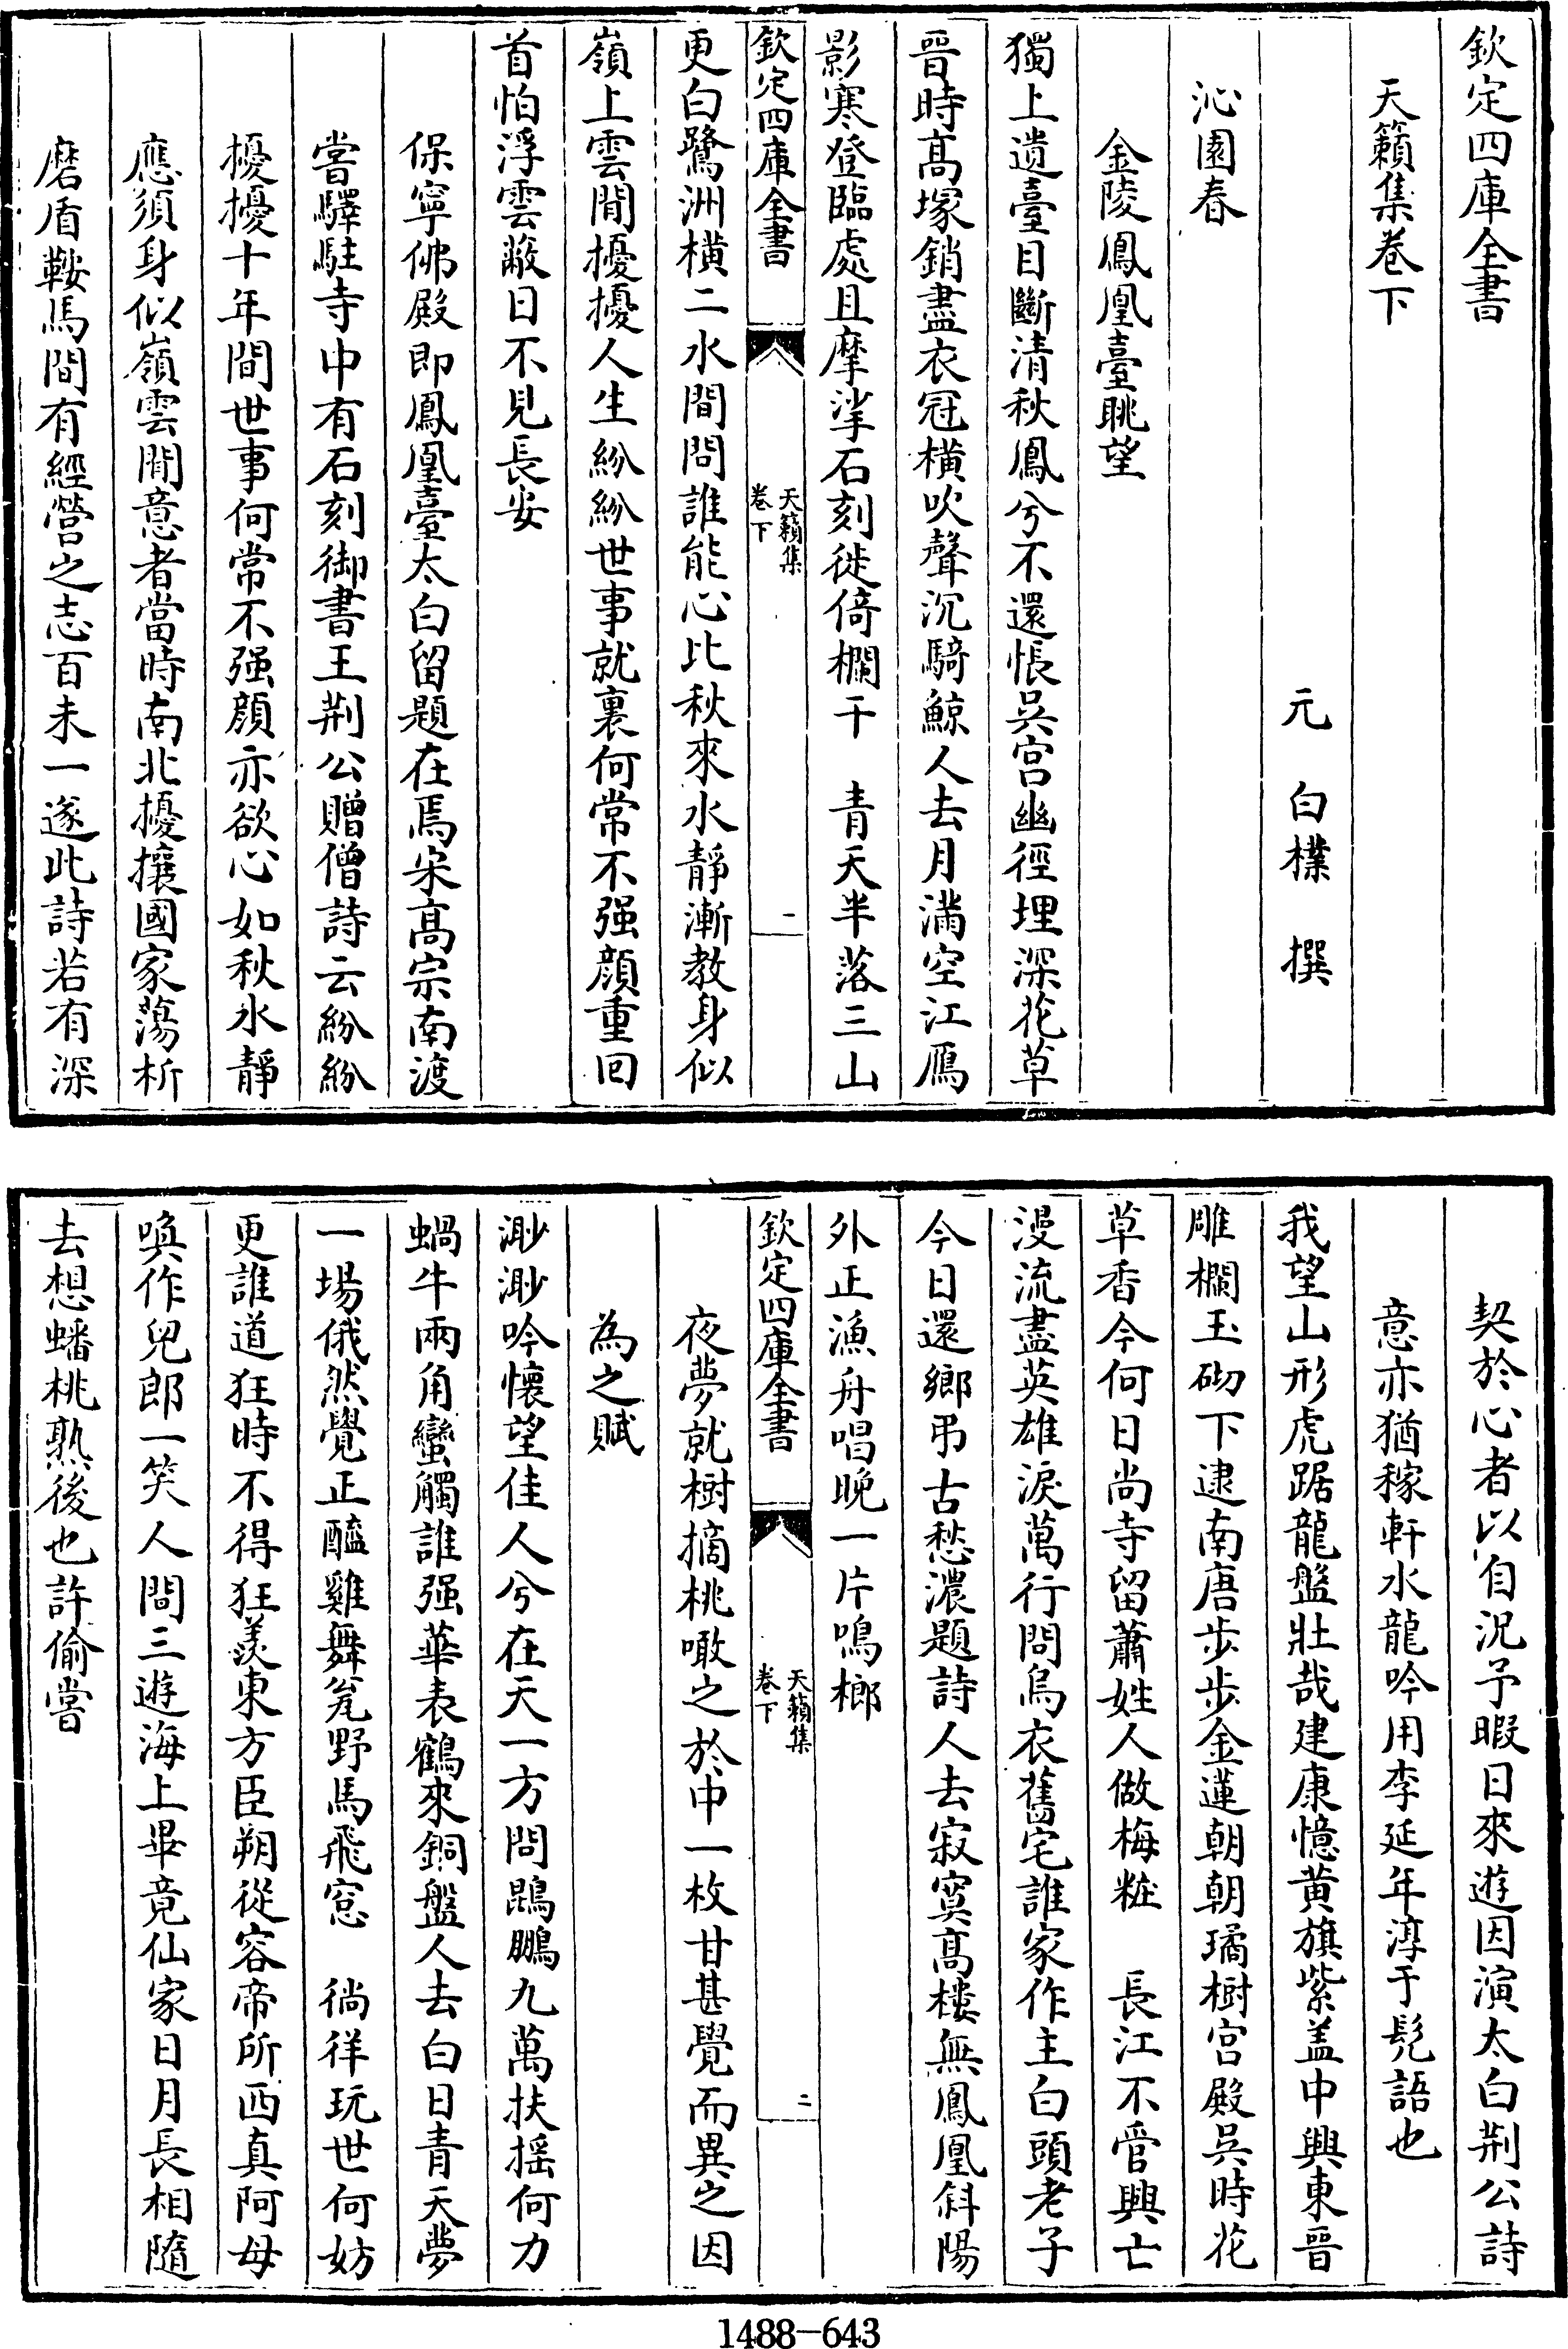 欽定四庫全書
天籟集卷下
元　白樸　撰
沁園春
金陵鳳凰臺眺望
獨上遺臺目斷清秋鳳兮不還悵吳宮幽徑埋深花草
晉時高塚銷盡衣冠橫吹聲沉騎鯨人去月滿空江鴈
影寒登臨處且摩挲石刻徙倚欄干　青天半落三山
欽定四庫全書
天籟集
卷下
一
更白鷺洲橫二水間問誰能心比秋來水靜漸教身似
嶺上雲閒擾擾人生紛紛世事就裏何常不强顔重回
首怕浮雲蔽日不見長安
保寧佛殿即鳳凰臺太白留題在焉宋高宗南渡
嘗驛駐寺中有石刻御書王荆公贈僧詩云紛紛
擾擾十年間世事何常不强顔亦欲心如秋水靜
應須身似嶺雲閒意者當時南北擾攘國家蕩析
磨盾鞍馬間有經營之志百未一遂此詩若有深
契於心者以自況予暇日來遊因演太白荆公詩
意亦猶稼軒水龍吟用李延年淳于髠語也
我望山形虎踞龍盤壯哉建康憶黄旗紫盖中興東晉
雕欄玉砌下逮南唐步步金蓮朝朝璚樹宮殿吳時花
草香今何日尚寺留蕭姓人做梅粧　長江不管興亡
漫流盡英雄淚萬行問烏衣舊宅誰家作主白頭老子
今日還鄉弔古愁濃題詩人去寂寞高樓無鳳凰斜陽
外正漁舟唱晚一片鳴榔
欽定四庫全書
天籟集
卷下
二
夜夢就樹摘桃噉之於中一枚甘甚覺而異之因
為之賦
渺渺吟懷望佳人兮在天一方問鵾鵬九萬扶摇何力
蝸牛兩角蠻觸誰强華表鶴來銅盤人去白日青天夢
一場俄然覺正醯雞舞瓮野馬飛窓　徜徉玩世何妨
更誰道狂時不得狂羨東方臣朔從容帝所西真阿母
喚作兒郎一笑人間三遊海上畢竟仙家日月長相隨
去想蟠桃熟後也許偷嘗
1488-643